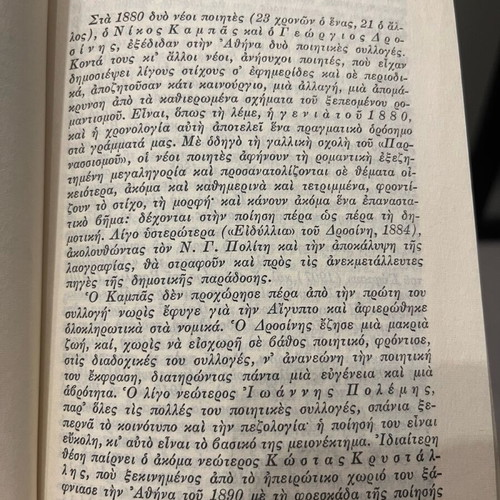 Στὰ 1880 δυὸ νέοι ποιητὲς (23 χρονῶν ὁ ἕνας, 21 ὁ ἄλ-
λος), ὁ Νίκος Καμπᾶς καὶ ὁ Γεώργιος Δρο-
σίνης, ἐξέδιδαν στὴν Ἀθήνα δυὸ ποιητικὲς συλλογές.
Κοντά τους κι' ἄλλοι νέοι, ἀνήσυχοι ποιητές, ποὺ εἶχαν
δημοσιέψει λίγους στίχους σ' ἐφημερίδες καὶ σὲ περιοδι-
κά, ἀποζητοῦσαν κάτι καινούργιο, μιὰ ἀλλαγή, μιὰ ἀπομά-
κρυνση ἀπὸ τὰ καθιερωμένα σχήματα τοῦ ξεπεσμένου ρο-
μαντισμοῦ. Εἶναι, ὅπως τὴ λέμε, ἡ γενιὰ τοῦ 1880,
καὶ ἡ χρονολογία αὐτὴ ἀποτελεῖ ἕνα πραγματικὸ ὁρόσημο
στὰ γράμματά μας. Μὲ ὁδηγὸ τὴ γαλλικὴ σχολὴ τοῦ «Παρ-
νασσισμοῦ», οἱ νέοι ποιητὲς ἀφήνουν τὴ ρομαντικὴ ἐξεζη-
τημένη μεγαληγορία καὶ προσανατολίζονται σὲ θέματα οἰ-
κειότερα, ἀκόμα καὶ καθημερινὰ καὶ τετριμμένα, φροντί-
ζουν τὸ στίχο, τὴ μορφή· καὶ κάνουν ἀκόμα ἕνα ἐπαναστα-
τικὸ βῆμα: δέχονται στὴν ποίηση πέρα ὣς πέρα τὴ δη-
μοτική. Λίγο ὑστερώτερα («Εἰδύλλια» τοῦ Δροσίνη, 1884),
ἀκολουθώντας τὸν Ν. Γ. Πολίτη καὶ τὴν ἀποκάλυψη τῆς
λαογραφίας, θὰ στραφοῦν καὶ πρὸς τὶς ἀνεκμετάλλευτες
πηγὲς τῆς δημοτικῆς παράδοσης.
Ὁ Καμπᾶς δὲν προχώρησε πέρα ἀπὸ τὴν πρώτη του
συλλογή· νωρὶς ἔφυγε γιὰ τὴν Αἴγυπτο καὶ ἀφιερώθηκε
ὁλοκληρωτικὰ στὰ νομικά. Ὁ Δροσίνης ἔζησε μιὰ μακριὰ
ζωή, καί, χωρὶς νὰ εἰσχωρῆ σὲ βάθος ποιητικό, φρόντισε,
στὶς διαδοχικές του συλλογές, ν' ἀνανεώνη τὴν ποιητική
του ἔκφραση, διατηρώντας πάντα μιὰ εὐγένεια καὶ μιὰ
ἁβρότητα. Ὁ λίγο νεώτερος Ἰωάννης Πολέμης,
παρ' ὅλες τὶς πολλές του ποιητικὲς συλλογές, σπάνια ξε-
περνᾶ τὸ κοινότυπο καὶ τὴν πεζολογία· ἡ ποίησή του εἶναι
εὔκολη, κι' αὐτὸ εἶναι τὸ βασικό της μειονέκτημα. Ἰδιαίτερη
θέση παίρνει ὁ ἀκόμα νεώτερος Κώστας Κρυστάλ-
λης, ποὺ ξεκινημένος ἀπὸ τὸ ἠπειρώτικο χωριό του ξά-
φνιασε τὴν Ἀθήνα τοῦ 1890 μὲ τὴ φρεσκάδα τῆς ποίησής